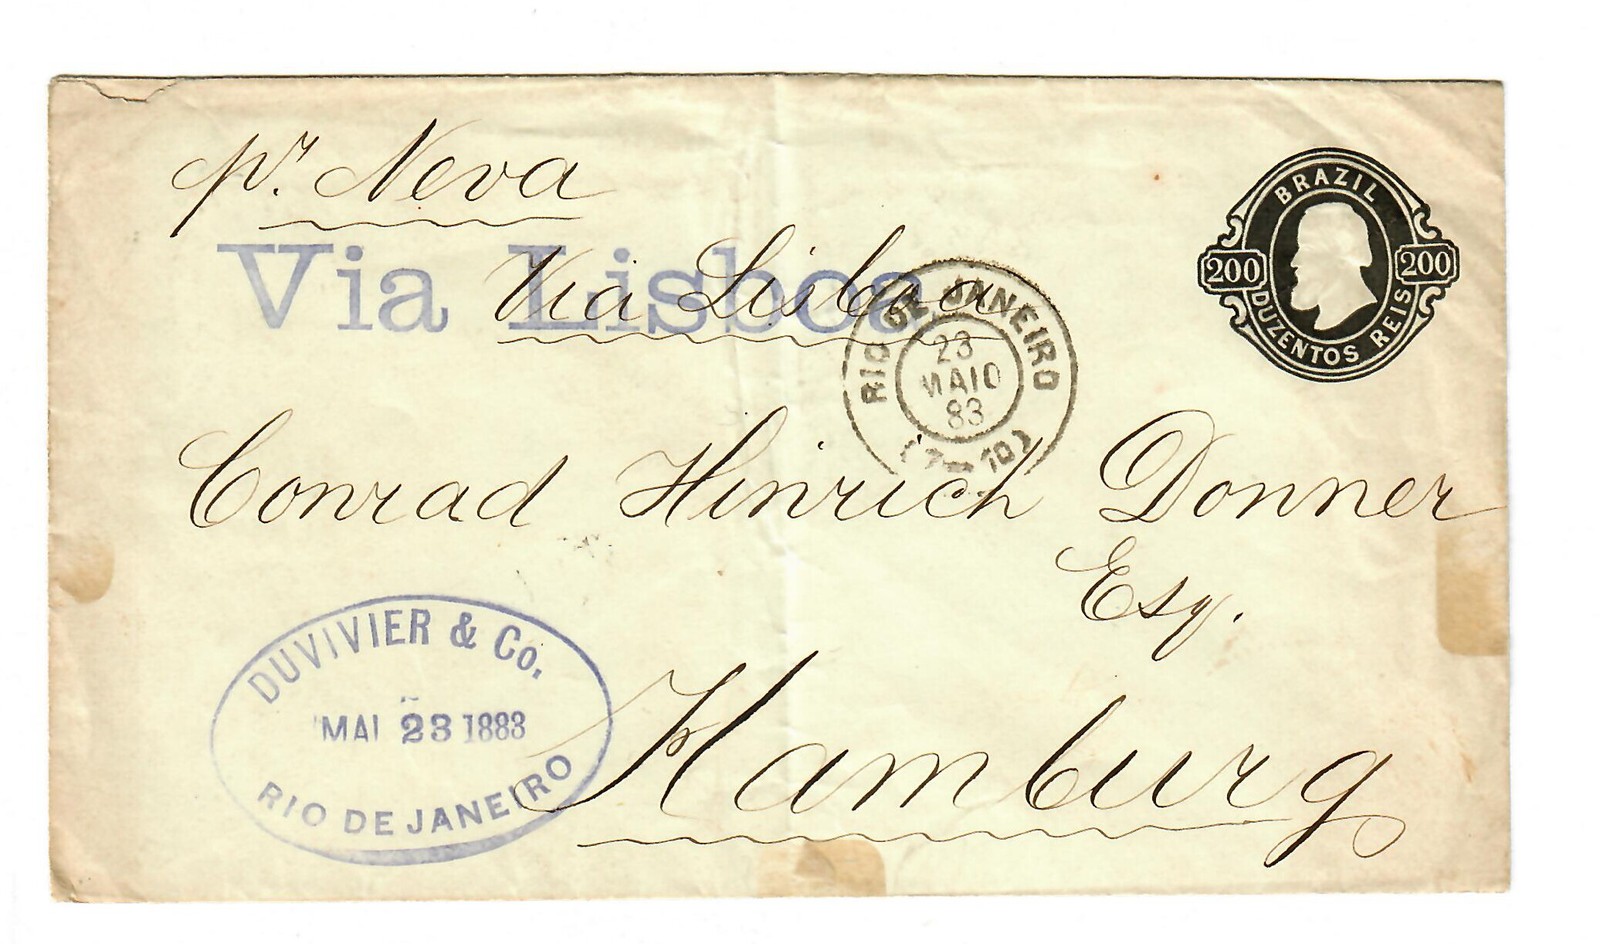 pr. Neva
Via Lisboa
Via Lisboa
BRAZIL
200 200
DUZENTOS REIS
RIO DE JANEIRO
23
MAIO
83
(7-10)
Conrad Hinrich Donner
Esq.
Hamburg
DUVIVIER & Co.
MAI 23 1883
RIO DE JANEIRO